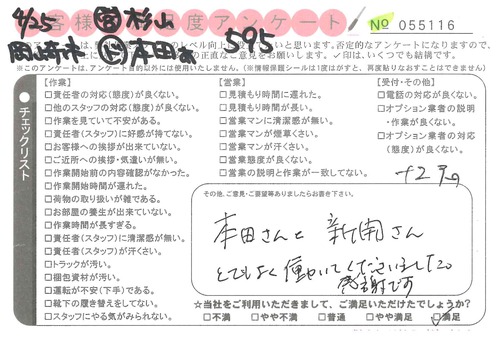 4/25
杉山
お客様満足度アンケート
No 055116
岡崎市
本田
595
□は、いくつでも結構です。
※このアンケートは、アンケート目的以外には使用いたしません。（※情報保護シールは1度はがすと、再度貼りなおすことはできません）
チェックリスト
【作業】
□責任者の対応(態度)が良くない。
□他のスタッフの対応(態度)が良くない。
□作業を見ていて不安がある。
□責任者(スタッフ)に好感が持てない。
□お客様への挨拶が出来ていない。
□ご近所への挨拶・気遣いが無い。
□作業開始前の内容確認がなかった。
□作業開始時間が遅れた。
□荷物の取り扱いが雑である。
□お部屋の養生が出来ていない。
□作業時間が長すぎる。
□責任者(スタッフ)に清潔感が無い。
□責任者(スタッフ)が汗くさい。
□トラックが汚い。
□梱包資材が汚い。
□運転が不安(下手)である。
□靴下の履き替えをしてない。
□スタッフにやる気がみられない。
【営業】
□見積もり時間に遅れた。
□見積もり時間が長い。
□営業マンに清潔感が無い。
□営業マンが煙草くさい。
□営業マンが汗くさい。
□営業態度が良くない。
□営業の説明と作業が一致してない。
【受付・その他】
□電話の対応が良くない。
□オプション業者の説明
・作業が良くない。
□オプション業者の対応
(態度)が良くない。
その他、ご意見・ご要望等ありましたらお書き下さい。
本田さんと 新開さん
とてもよく働いてくださいました。
感謝です
☆当社をご利用いただきまして、ご満足いただけたでしょうか?
□不満 □やや不満 □普通 □やや満足 □満足